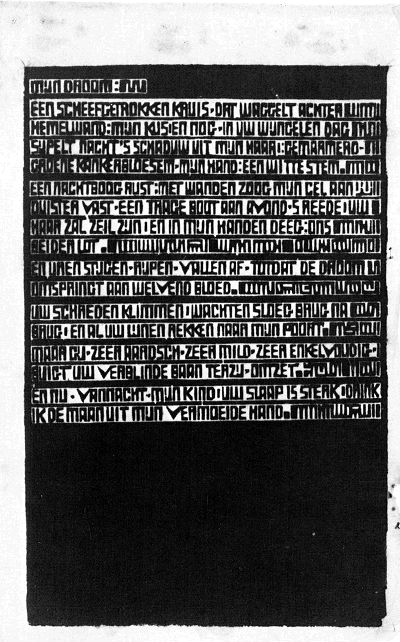 MIJN DROOM:
EEN SCHEEFGETROKKEN KRUIS · DAT WAGGELT ACHTER
HEMELWAND: MIJN KUSSEN NOG · IN UW WIJNGELEN DAG
SYPELT NACHT'S SCHADUW UIT MIJN HAAR: GEMARMERD-
GROENE KANKERBLOESEM · MIJN HAND: EEN WITTE STEM.
EEN NACHTBOOG RUST: MET WANDEN ZOOG MIJN CEL AAN
DUISTER VAST · EEN TRAGE BOOT AAN AVOND'S REEDE: UW
HAAR ZAC ZEIL ZIJN: EN IN MIJN HANDEN DEEG: ONS
BEIDER LOT.
EN UREN STIJGEN · RIJPEN · VALLEN AF · TOTDAT DE DROOM
ONTSPRINGT AAN WELVEND BLOED.
UW SCHREDEN KLIMMEN: WACHTEN SLOEG BRUG NA
BRUG: EN AL UW LIJNEN REKKEN NAAR MIJN POORT.
MAAR GIJ · ZEER AARDSCH · ZEER MILD · ZEER ENKELVOUDIG ·
BUIGT UW VERBLINDE BAAN TERZIJ · ONTZET.
EN NU · VANNACHT · MIJN KIND: UW SLAAP IS STERK: DRINK
IK DE MAAN UIT MIJN VERMOEIDE HAND.